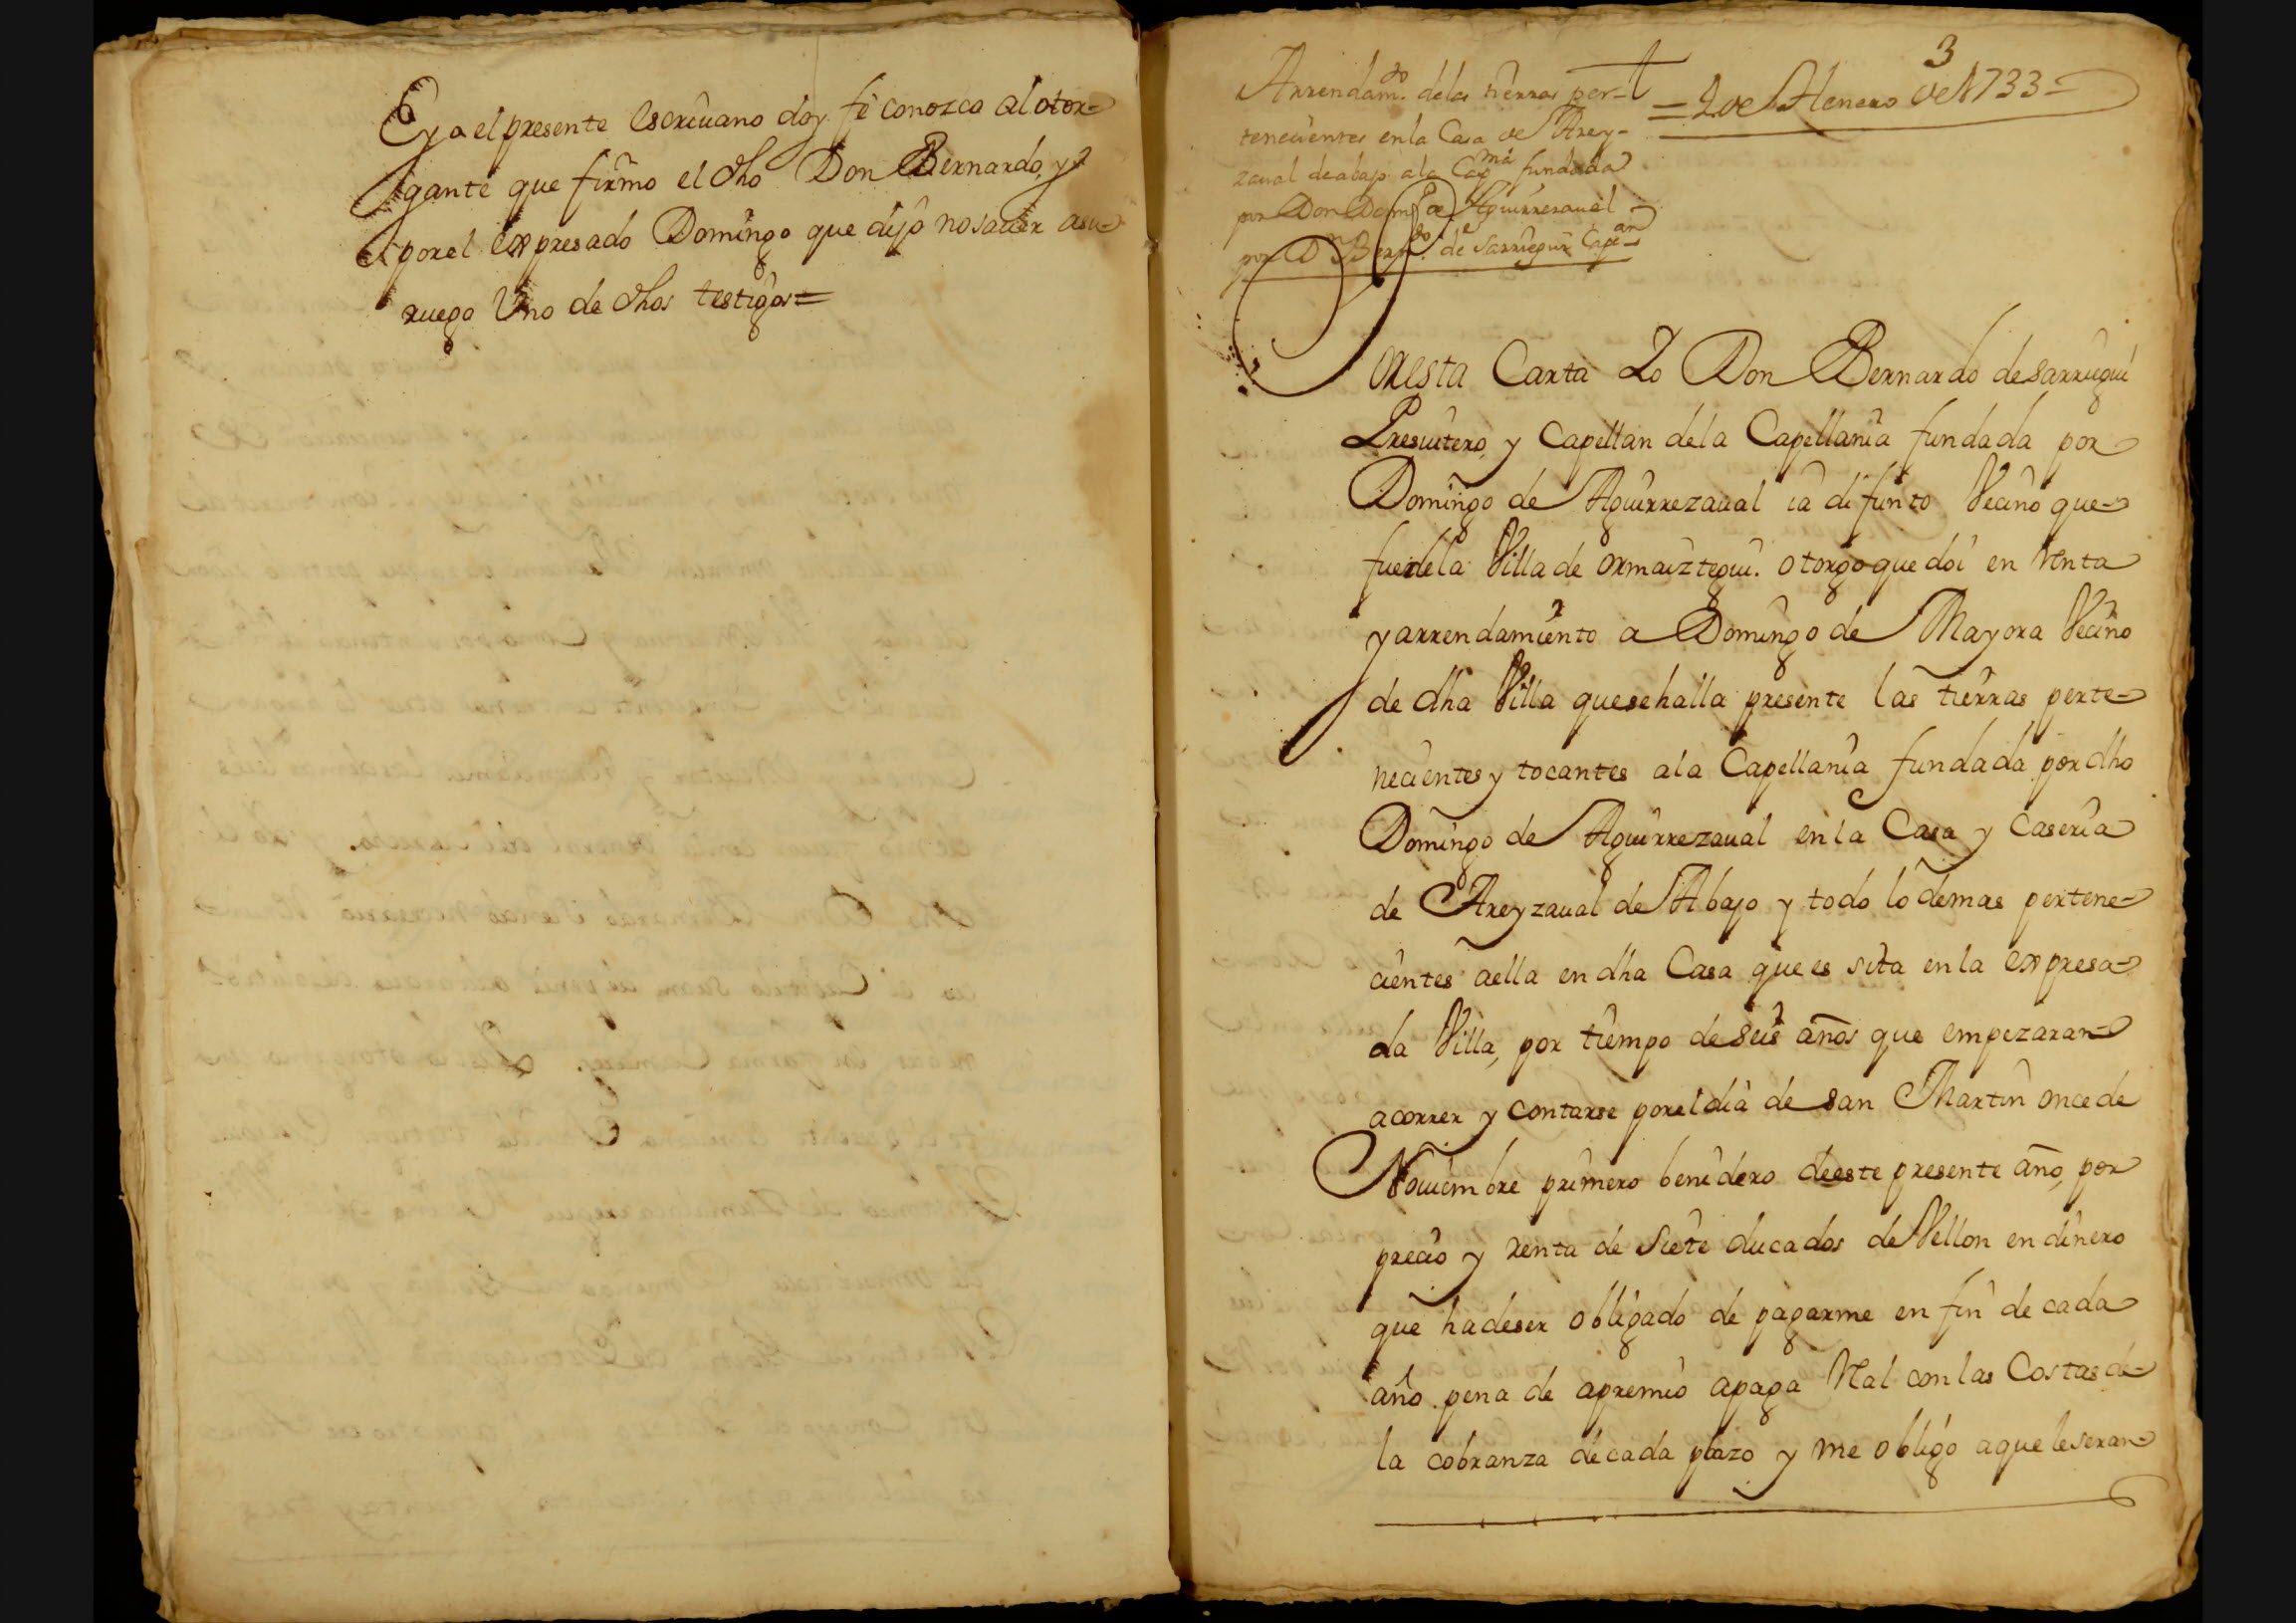 E yo el presente escriuano doy fé conozco al otor=
gante que firmo el dho Don Bernardo, y
por el expresado Domingo que dijo no sauer a su
ruego Uno de dhos testigos=
3
Arrendam.to de las tierras per-
tenecientes en la Casa de Arey-
zaual de abajo a la Cap.nia fundada
por Don Dom.go de Aguirrezaual
por Dn Bern.do de Sarriegui Capp.an
= 2 de Henero de 1733=
Por esta Carta Yo Don Bernardo de Sarriegui
Presuitero, y Capellan de la Capellania fundada por
Domingo de Aguirrezaual ia difunto Vecino que
fue de la Villa de Ormaiztegui. otorgo que doi en renta
y arrendamiento a Domingo de Mayora Vecino
de dha Villa que se halla presente las tierras perte=
necientes y tocantes a la Capellania fundada por dho
Domingo de Aguirrezaual en la Casa y Caseria
de Areyzaual de Abajo y todo lo demas pertene=
cientes a ella en dha Casa que es sita en la expresa=
da Villa, por tiempo de seis años que empezaran
a correr y contarse por el dia de san Martin once de
Nouiembre primero benidero de este presente año, por
precio y renta de siete ducados de Vellon en dinero
que ha de ser obligado de pagarme en fin de cada
año pena de apremio a paga Real con las Costas de=
la cobranza de cada plazo y me obligo a que le seran